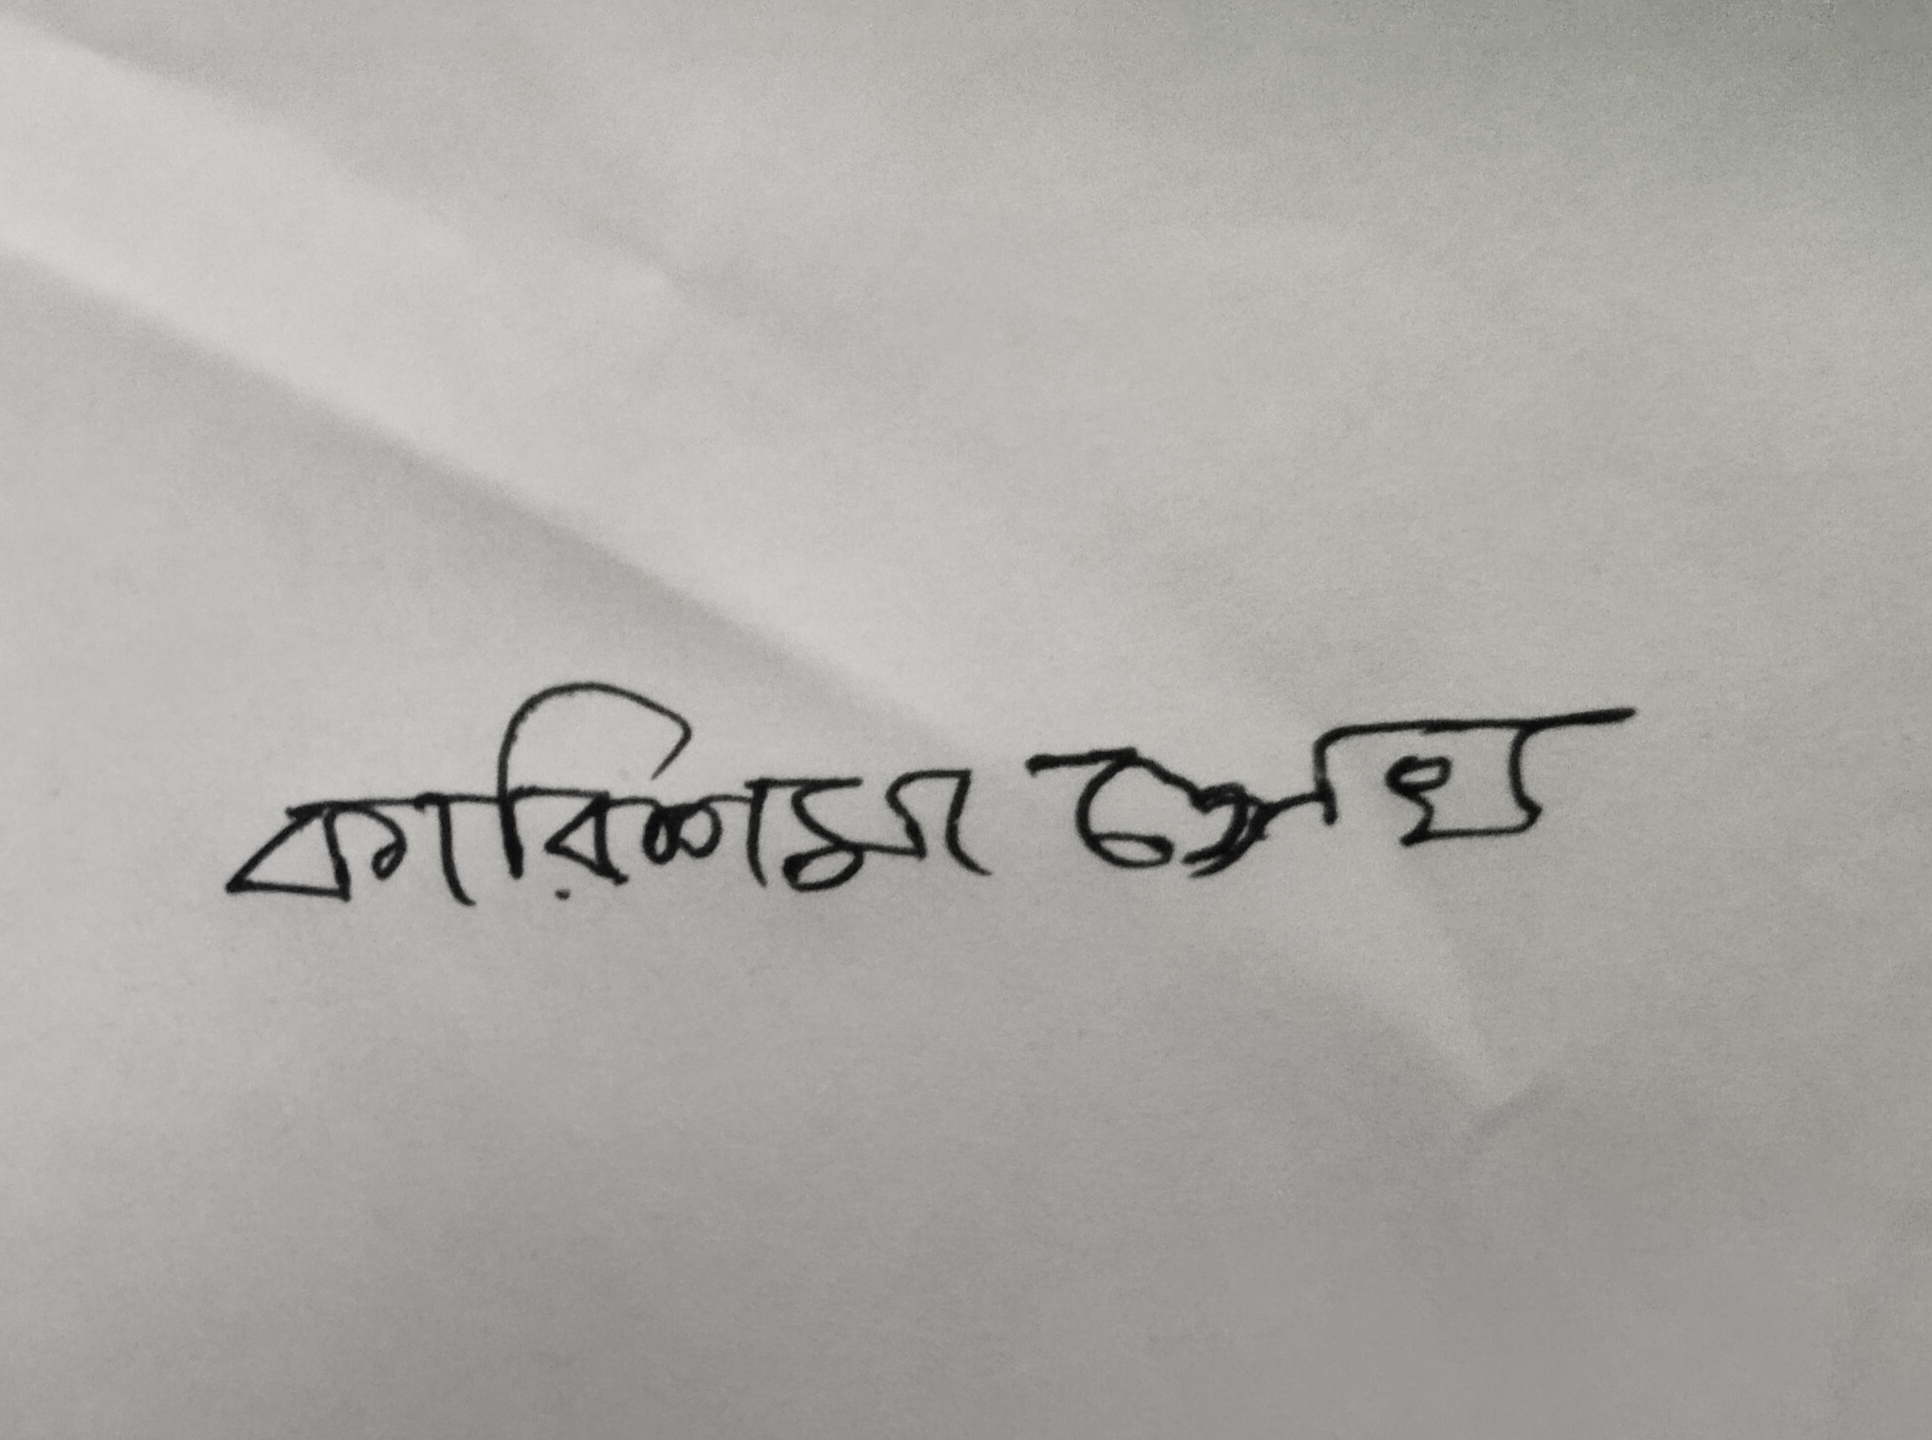 কারিশমা শেখ